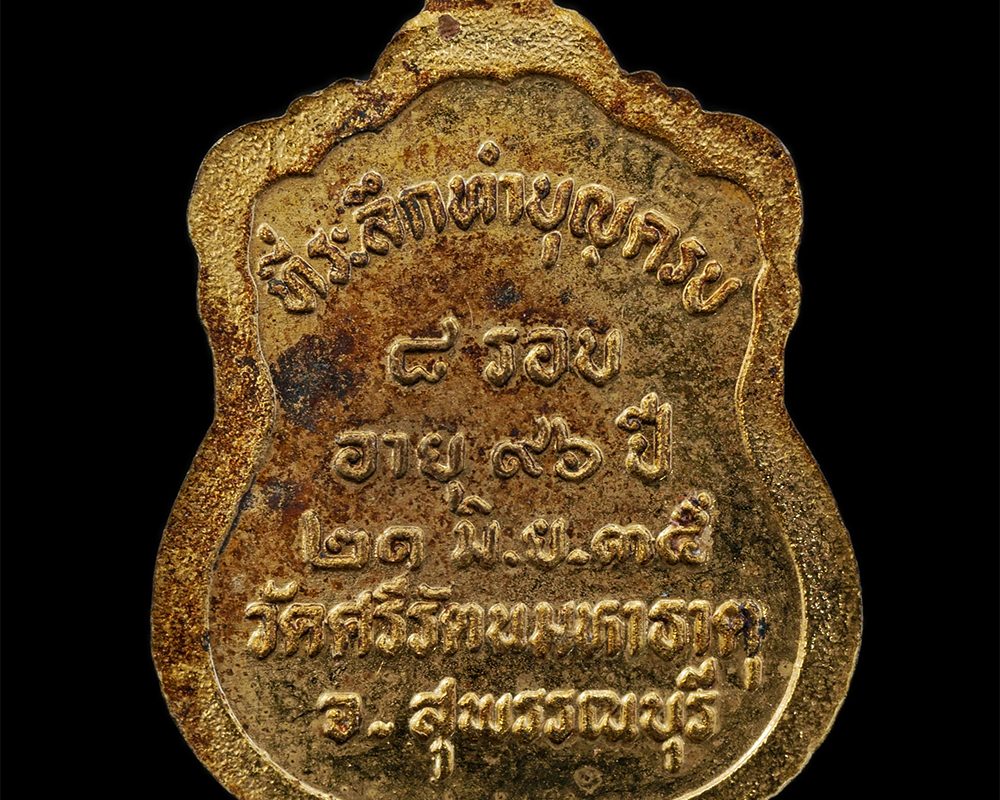 ที่ระลึกทำบุญครบ
๘ รอบ
อายุ ๙๖ ปี
๒๑ มิ.ย.๓๕
วัดศรีรัตนมหาธาตุ
จ. สุพรรณบุรี